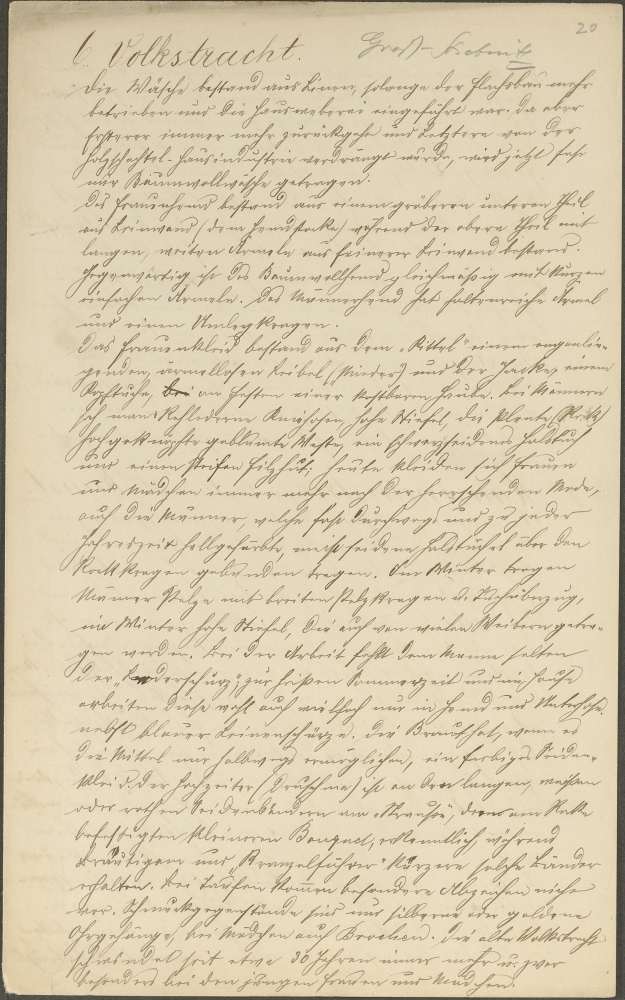 20
6. Volkstracht. Groß-
Die Wäsche bestand aus Linnen, solange der Flachsbau mehr
betrieben und die Hausweberei eingeführt war. Da aber
Ersterer immer mehr zurückgeht und Letztere von der
Holzschachtel-Hausindustrie verdrängt wurde, wird jetzt fast
nur Baumwollwäsche getragen.
Das Frauenhemd bestand aus einem gröberen unteren Theil
aus Leinwand (dem ) während der obere Theil mit
langen, weiten Ärmeln aus feinerer Leinwand bestand.
Gegenwärtig ist das Baumwollhemd gleichmäßig mit kurzen
einfachen Ärmeln. Das Männerhemd hat faltenreiche Ärmel
und einen Umlegkragen.
Das Frauenkleid bestand aus dem "Kittel" einem enganlie-
genden, ärmellosen Leibel (Mieder) und der Jacke, einem
Kopftuche, bei an Festen einer kostbaren Haube. Bei Männern
sah man Rehlederne Kniehosen, hohe Stiefel, die
hochgeknöpfte geblümte Weste, ein schwarzseidenes Halstuch
und einen steifen Filzhut; heute kleiden sich Frauen
und Mädchen immer mehr nach der herrschenden Mode,
auch die Männer, welche fast durchwegs und zu jeder
Jahreszeit hellgefärbte, meist seidene Halstüchel über den
Rockkragen gebunden tragen. Im Winter tragen
Männer Pelze mit breiten Pelzkragen u. Tuchüberzug,
im Winter hohe Stiefel, die auch von vielen Weibern getra-
gen werden. Bei der Arbeit fehlt dem Manne selten
der "Lederschurz"; zur heißen Sommerzeit und im Hause
arbeiten diese wohl auch vielfach nur in Hemd und Unterhose
nebst blauer Leinenschürze. Die Braut hat, wenn es
die Mittel nur halbwegs ermöglichen, ein farbiges Seiden-
kleid. Der Hochzeiter (Druschma) ist an den langen, weißen
oder rothen Seidenbändern am "Strauße", dem am Rocke
befestigten kleineren Bouquet, erkenntlich, während
Bräutigam und "Kramelführer" kürzere solche Bänder
erhalten. Bei Taufen kommen besondere Abzeichen nicht
vor. Schmuckgegenstände sind nur silberne oder goldene
Ohrgehänge, bei Mädchen auch Brochen. Die alte Volkstracht
schwindet seit etwa 30 Jahren immer mehr u. zwar
besonders bei den jüngen Frauen und Mädchen.